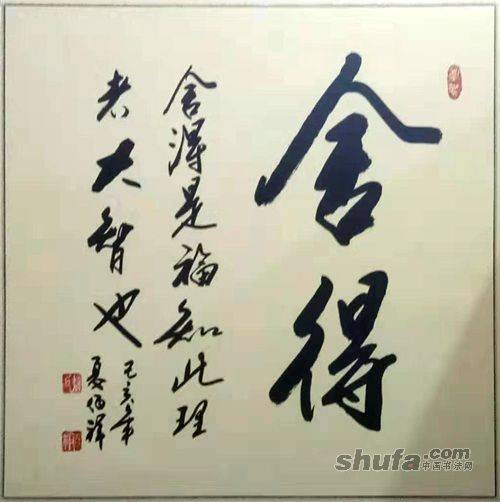 舍得
舍得是福知此理
者大智也
己亥年
shufa.com
中国书法网